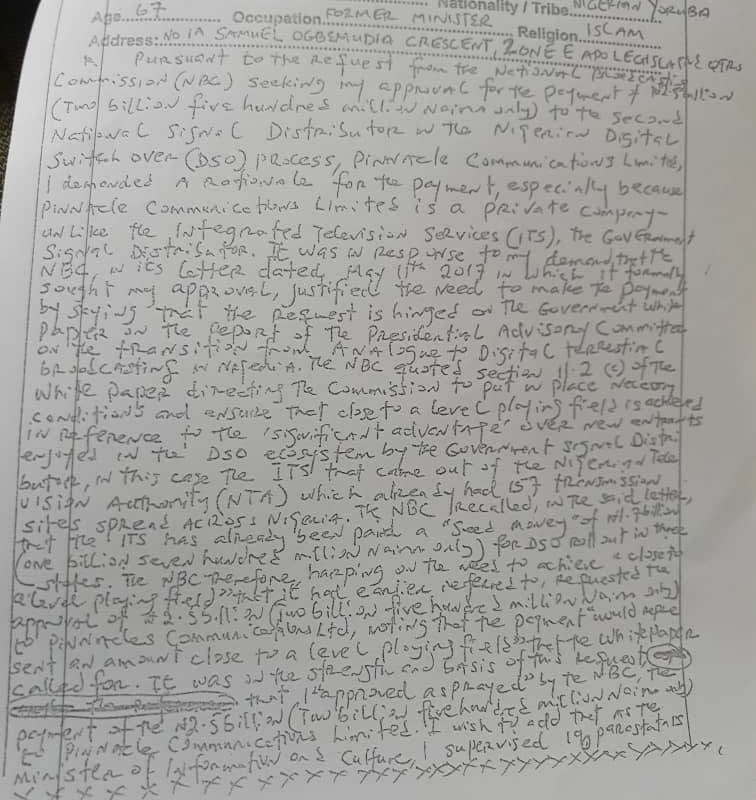 Nationality / Tribe NIGERIAN YORUBA
Age 67 Occupation FORMER MINISTER Religion ISLAM
Address: NO 1A SAMUEL OGBEMUDIA CRESCENT, ZONE E APO LEGISLATIVE QTRS
Pursuant to the Request from the National Broadcasting
Commission (NBC) seeking my approval for the payment of N2.5billion
(Two billion five hundred million Naira only) to the second
National Signal Distributor in the Nigerian Digital
Switch over (DSO) process, Pinnacle Communications Limited,
I demanded A Rationale for the payment, especially because
Pinnacle Communications Limited is a private company-
unlike the Integrated Television Services (ITS), the Government
Signal Distributor. It was in Response to my demand, that the
NBC, in its letter dated, May 11th 2017 in which it formally
sought my approval, justified the need to make the payment
by saying that the Request is hinged on the Government White
Papper on the Report of the Presidential Advisory Committee
on the transition from ANAlogue to Digital terrestial
broadcasting in Nigeria. The NBC quoted section 11.2 (c) of the
White paper directing the Commission to put in place
conditions and ensure that close to a level playing field is achieved
in reference to the 'significant advantage' over new entrants
enjoyed in the DSO ecosystem by the Government signal Distri
butor, in this case the ITS that came out of the Nigerian Tele
vision Authority (NTA) which already had 157 transmission
sites spread across Nigeria. The NBC recalled, in the said letter,
that the ITS has already been paid a "seed money" of N1.7billion
(one billion seven hundred million Naira only) for DSO Roll out in three
states. The NBC therefore, harping on the need to achieve "close to
a level playing field" that it had earlier referred to, requested the
approval of N2.5billion (Two billion five hundred million Naira only)
to Pinnacles Communications Ltd, noting that the payment "would repre
sent an amount close to a level playing field" that the White Paper
called for. It was on the strength and basis of this Request
that I "approved as prayed" by the NBC, the
payment of the N2.5billion (Two billion five hundred million Naira only)
to Pinnacle Communications Limited. I wish to add that as the
Minister of Information and Culture, I supervised parastatals
x x x x x x x x x x x x x x x x x x x x x x x x x x x